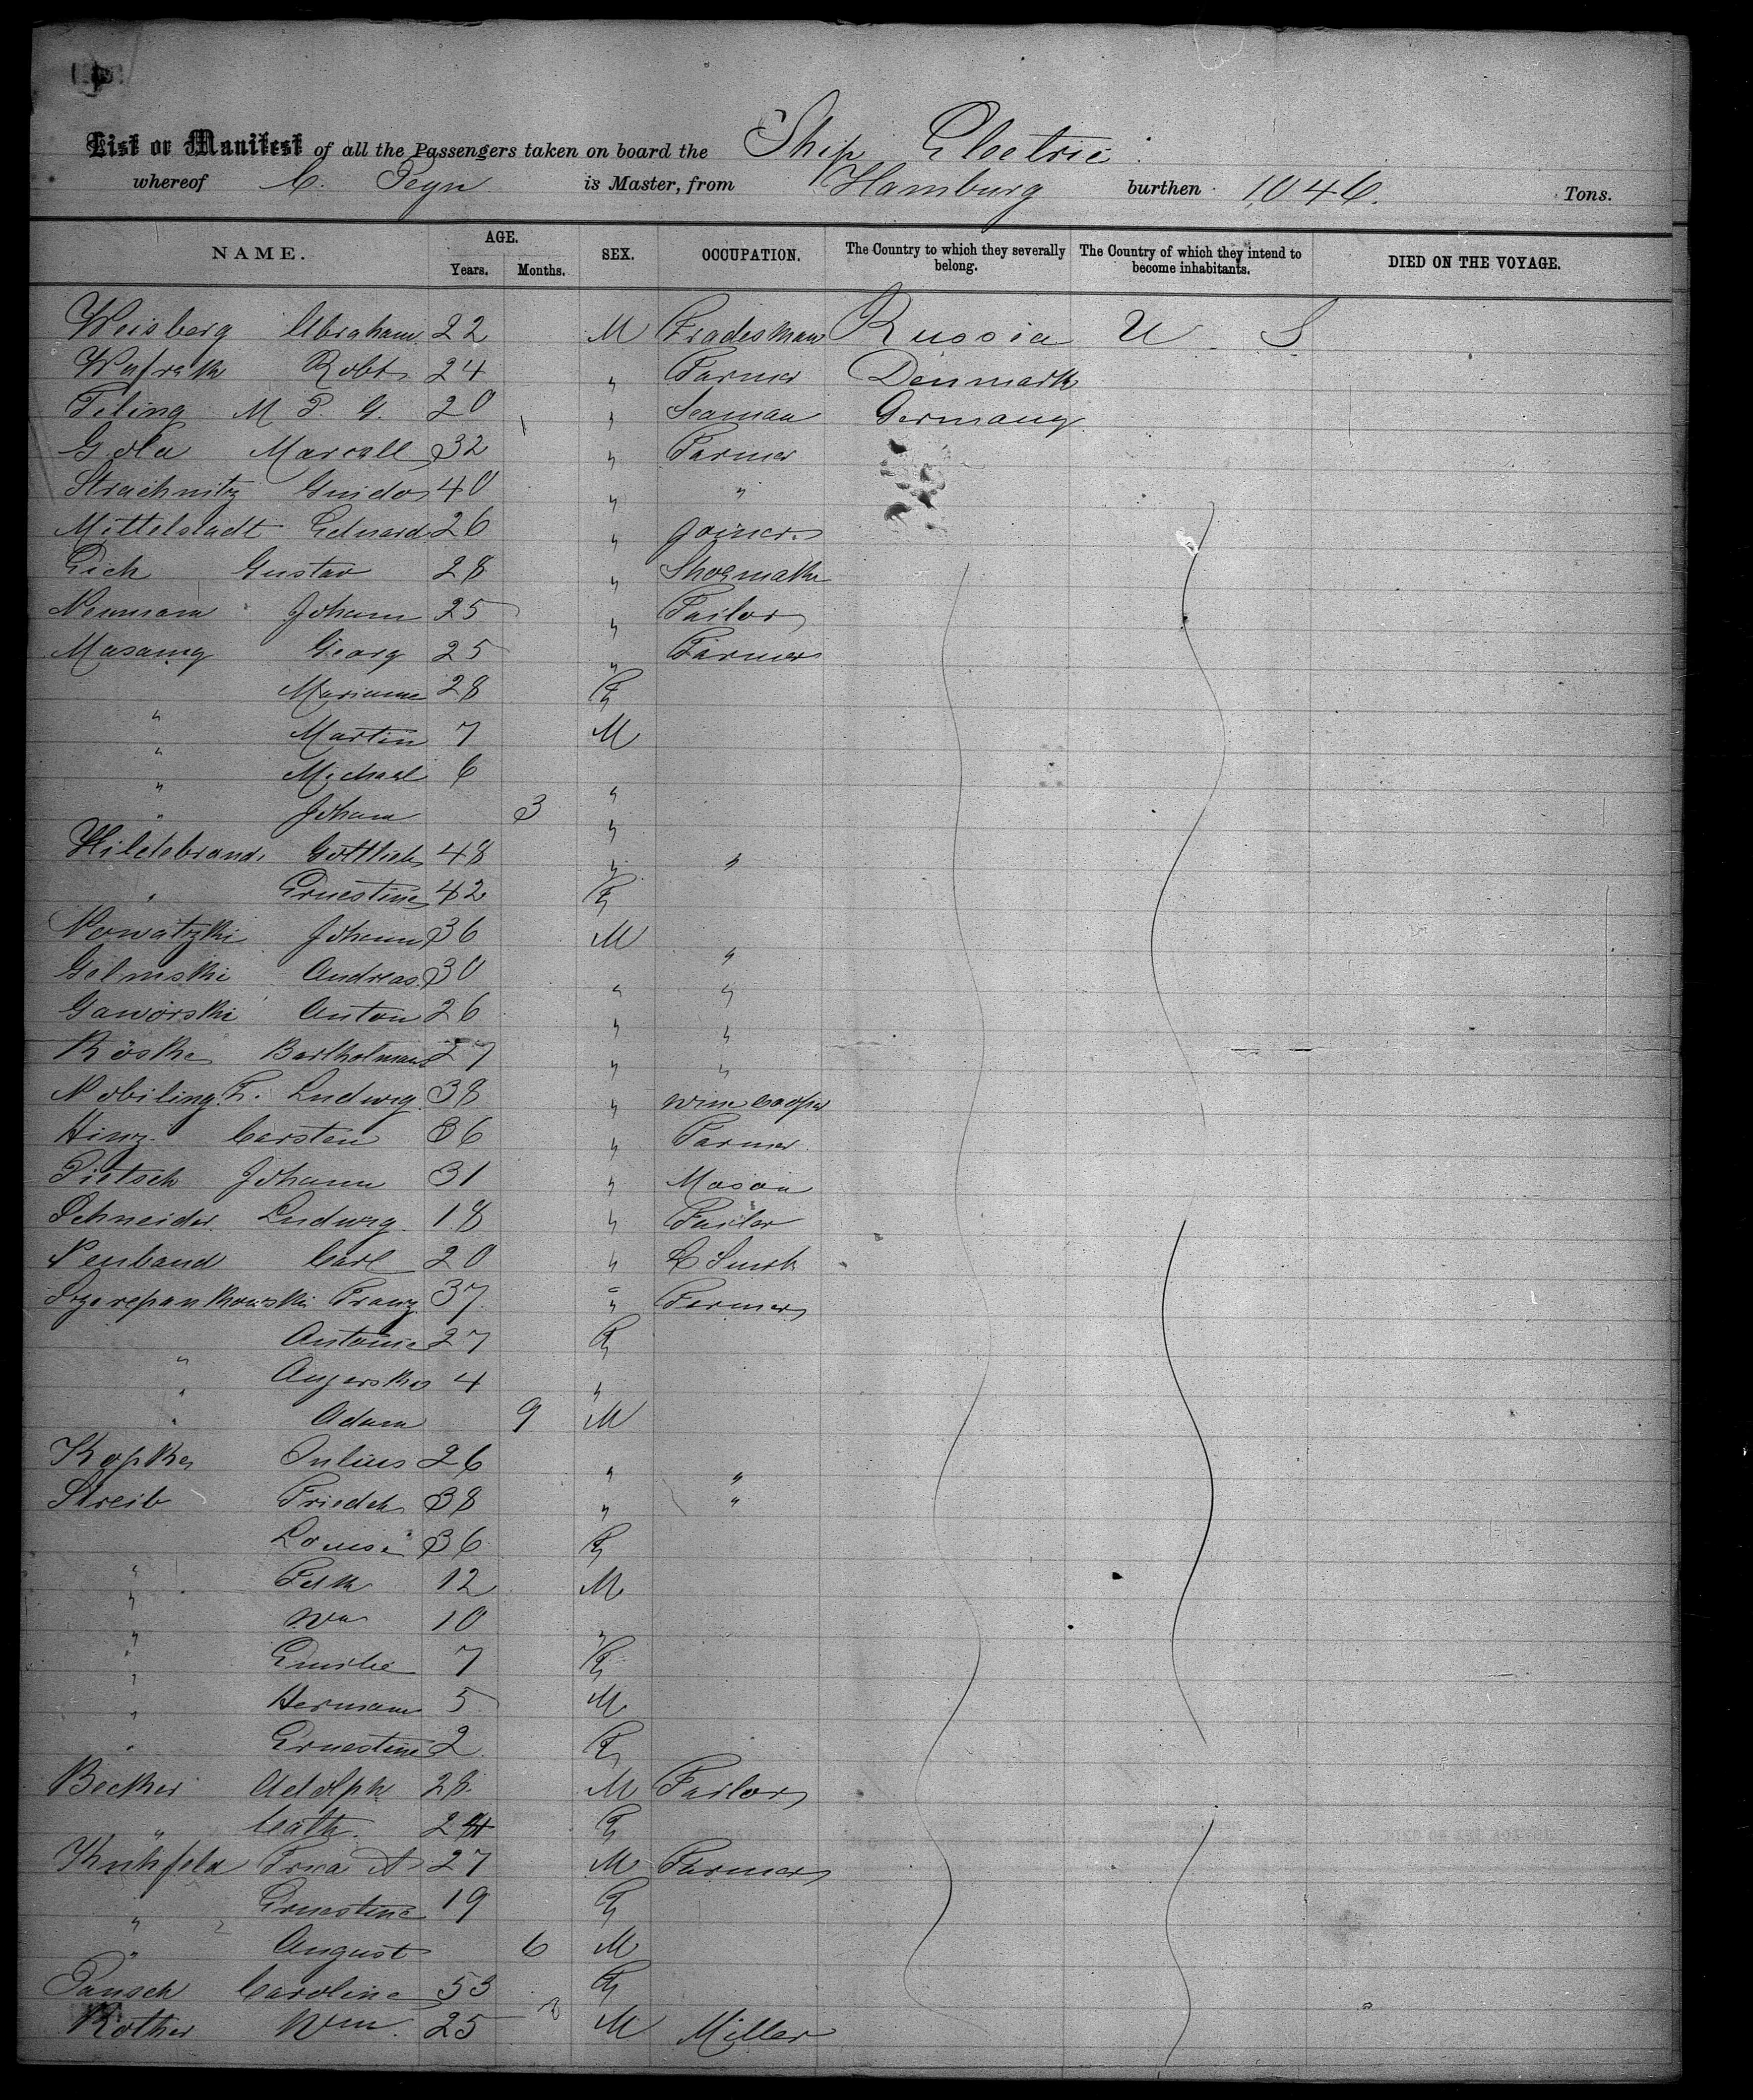 List or Manifest of all the Passengers taken on board the Ship Electric
whereof C. Peyn is Master, from Hamburg burthen 1046. Tons.
NAME. AGE. SEX. OCCUPATION. The Country to which they severally belong. The Country of which they intend to become inhabitants. DIED ON THE VOYAGE.
Years. Months.
Weisberg Abraham 22 M Tradesman Russia U S
Robt 24 " Farmer Denmark
M P. G. 20 " Seaman Germany
Gola 32 " Farmer
Strachnitz Guido 40 " "
Mittelstadt Eduard 26 " Joiner
Eich Gustav 28 " Shoemaker
Neumann Johann 25 " Tailor
Georg 25 " Farmer
" Marianne 28 F
" Martin 7 M
" Michael 6 "
" Johann 3 "
Hildebrand Gottlieb 48 " "
" Ernestine 42 F
Nowatzki Johann 36 M "
Andreas 30 " "
Gaworski Anton 26 " "
Röske 27 " "
Nobiling F. Ludwig 38 " wine cooper
Hinz Carsten 36 " Farmer
Pietsch Johann 31 " Mason
Schneider Ludwig 18 " Tailor
Neuband Carl 20 "
Szczepankowski Franz 37 " Farmer
" Antonie 27 F
" 4 "
" Adam 9 M
Kopke Julius 26 " "
Streib Friedch 38 " "
" Louise 36 F
" 12 M
" Wm 10 "
" Emilie 7 F
" Hermann 5 M
" Ernestine 2 F
Becker Adolph 28 M Tailor
" Cath. 24 F
Kuhfeld 27 M Farmer
" Ernestine 19 F
" August 6 M
Pansch Caroline 53 F
Rother Wm. 25 M Miller